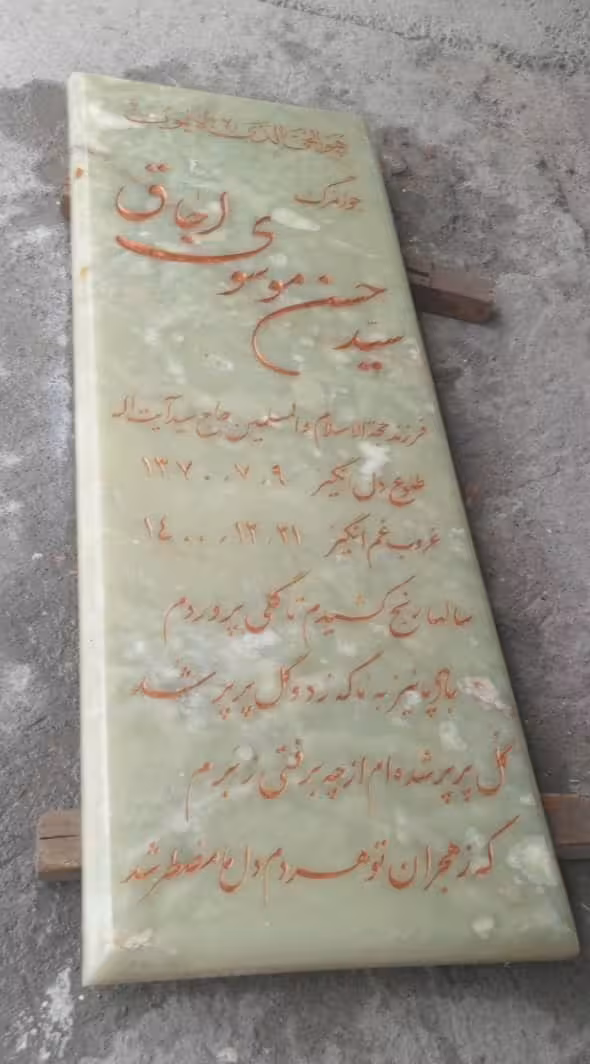 هوالحی الذی لا یموت
جوانمرگ
سید حسن موسوی اجاق
فرزند حجة الاسلام والمسلمین حاج سید آیت اله
طلوع دل انگیز ۱۳۷۰.۷.۹
غروب غم انگیز ۱۴۰۰.۱۲.۲۱
سالها رنج کشیدم تا گلی پروردم
باد پاییز به ناگه زد و گل پرپر شد
گل پرپر شده ام از چه برفتی ز برم
که ز هجران تو هر دم دل ما مضطر شد